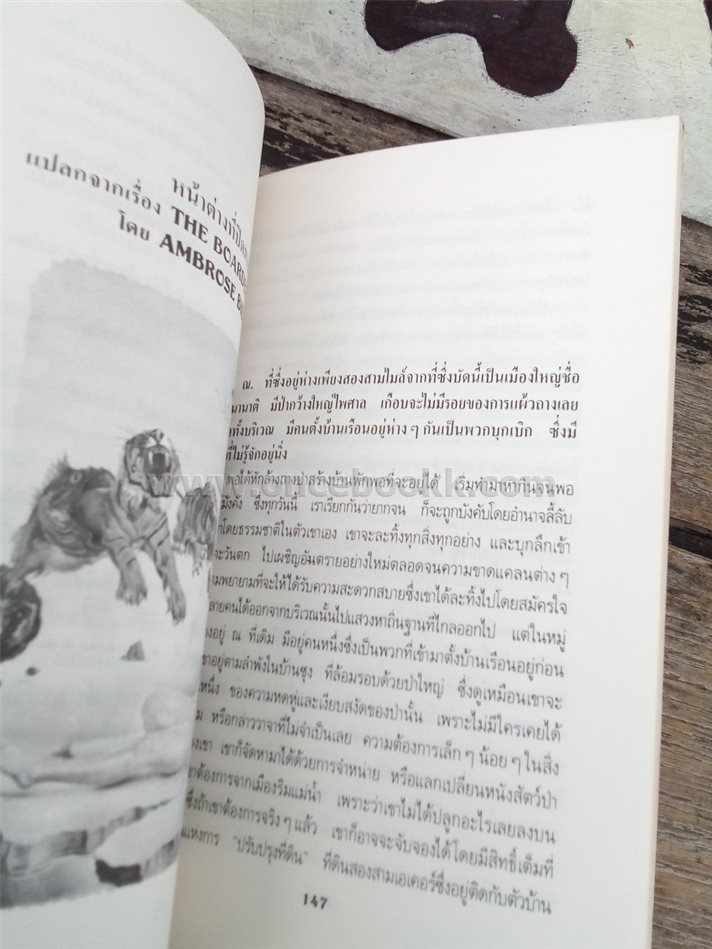 หน้าต่างที่ปิด
แปลกจากเรื่อง THE BOARD
โดย AMBROSE B
ณ. ที่ซึ่งอยู่ห่างเพียงสองสามไมล์จากที่ซึ่งบัดนี้เป็นเมืองใหญ่ชื่อ
นนาติ มีป่ากว้างใหญ่ไพศาล เกือบจะไม่มีรอยของการแผ้วถางเลย
ทั้งบริเวณ มีคนตั้งบ้านเรือนอยู่ห่าง ๆ กันเป็นพวกบุกเบิก ซึ่งมี
ที่ไม่รู้จักอยู่นิ่ง
พอได้หักล้างถางป่าสร้างบ้านพักพอที่จะอยู่ได้ เริ่มทำมาหากินจนพอ
มั่งคั่ง ซึ่งทุกวันนี้ เราเรียกกันว่ายากจน ก็จะถูกบังคับโดยอำนาจลี้ลับ
โดยธรรมชาติในตัวเขาเอง เขาจะละทิ้งทุกสิ่งทุกอย่าง และบุกลึกเข้า
ะวันตก ไปเผชิญอันตรายอย่างใหม่ตลอดจนความขาดแคลนต่าง ๆ
ามพยายามที่จะให้ได้รับความสะดวกสบายซึ่งเขาได้ละทิ้งไปโดยสมัครใจ
ลายคนได้ออกจากบริเวณนั้นไปแสวงหาถิ่นฐานที่ไกลออกไป แต่ในหมู่
างอยู่ ณ ที่เดิม มีอยู่คนหนึ่งซึ่งเป็นพวกที่เข้ามาตั้งบ้านเรือนอยู่ก่อน
ขาอยู่ตามลำพังในบ้านซุง ที่ล้อมรอบด้วยป่าใหญ่ ซึ่งดูเหมือนเขาจะ
หนึ่ง ของความหดหู่และเงียบสงัดของป่านั้น เพราะไม่มีใครเคยได้
ม หรือกล่าววาจาที่ไม่จำเป็นเลย ความต้องการเล็ก ๆ น้อย ๆ ในสิ่ง
องเขา เขาก็จัดหามาได้ด้วยการจำหน่าย หรือแลกเปลี่ยนหนังสัตว์ป่า
ขาต้องการจากเมืองริมแม่น้ำ เพราะว่าเขาไม่ได้ปลูกอะไรเลยลงบน
ซึ่งถ้าเขาต้องการจริง ๆ แล้ว เขาก็อาจจะจับจองได้โดยมีสิทธิ์เต็มที่
แห่งการ "ปรับปรุงที่ดิน" ที่ดินสองสามเอเคอร์ซึ่งอยู่ติดกับตัวบ้าน
147